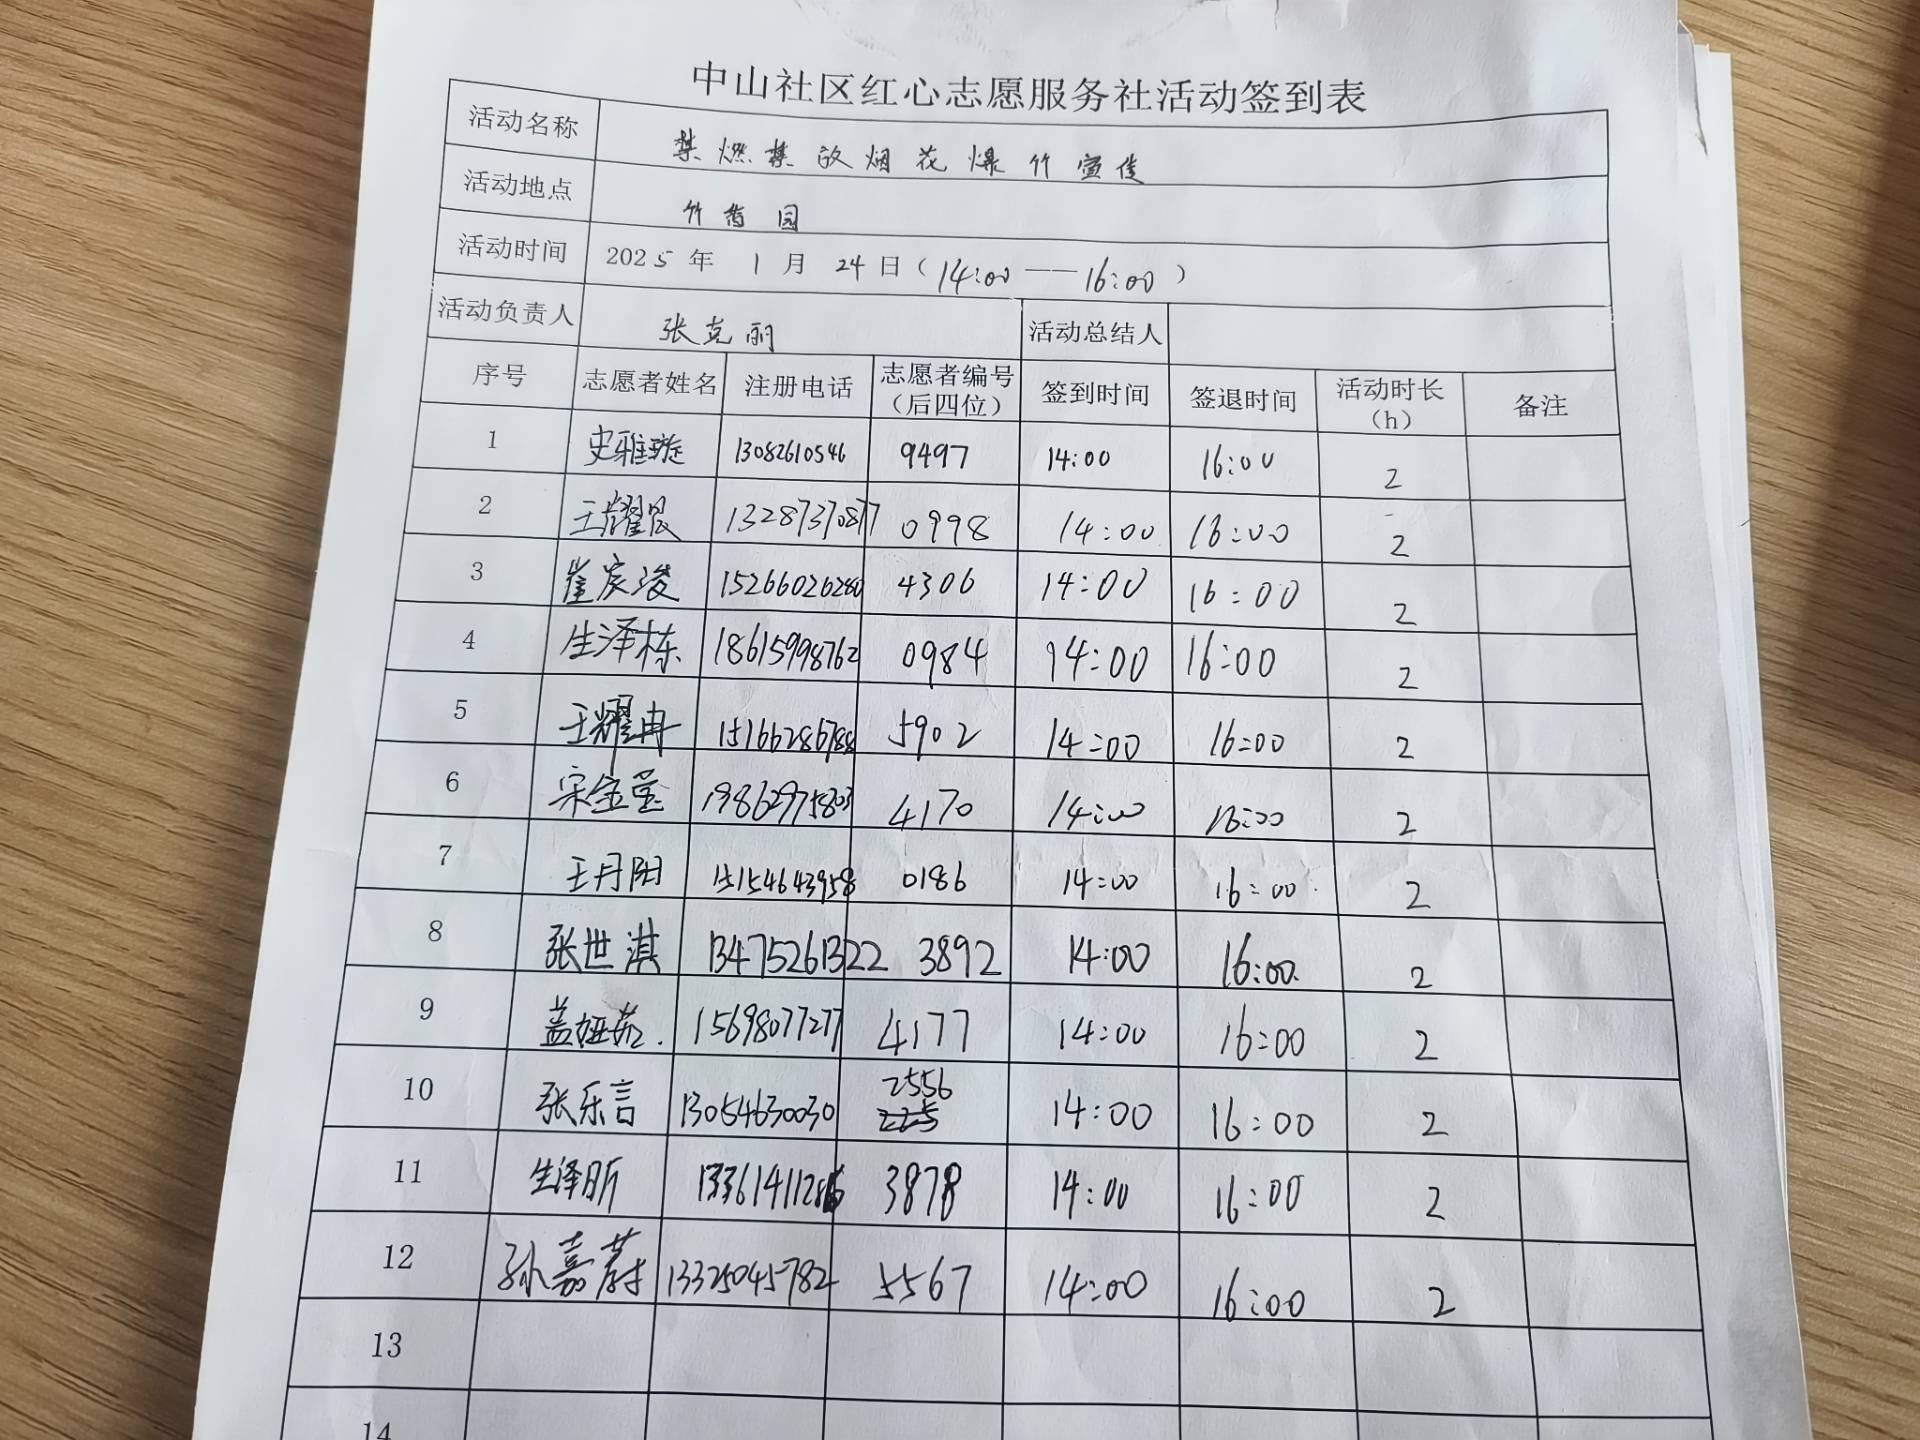 中山社区红心志愿服务社活动签到表
活动名称 禁燃禁放烟花爆竹宣传
活动地点 竹香园
活动时间 2025年 1月 24日（14:00——16:00）
活动负责人 张克丽 活动总结人
序号 志愿者姓名 注册电话 志愿者编号（后四位） 签到时间 签退时间 活动时长（h） 备注
1 史雅璇 13082610546 9497 14:00 16:00 2
2 王耀晨 13287370877 0998 14:00 16:00 2
3 崔宸浚 15266026280 4306 14:00 16:00 2
4 生泽栋 18615998762 0984 14:00 16:00 2
5 王耀冉 15166286788 5902 14:00 16:00 2
6 宋金莹 19862975803 4170 14:00 16:00 2
7 王丹阳 15154643958 0186 14:00 16:00 2
8 张世淇 13475261322 3892 14:00 16:00 2
9 盖娅茹 15698077277 4177 14:00 16:00 2
10 张乐言 13054630030 2556 14:00 16:00 2
11 生泽昕 3878 14:00 16:00 2
12 孙嘉蔚 13325045782 5567 14:00 16:00 2
13
14